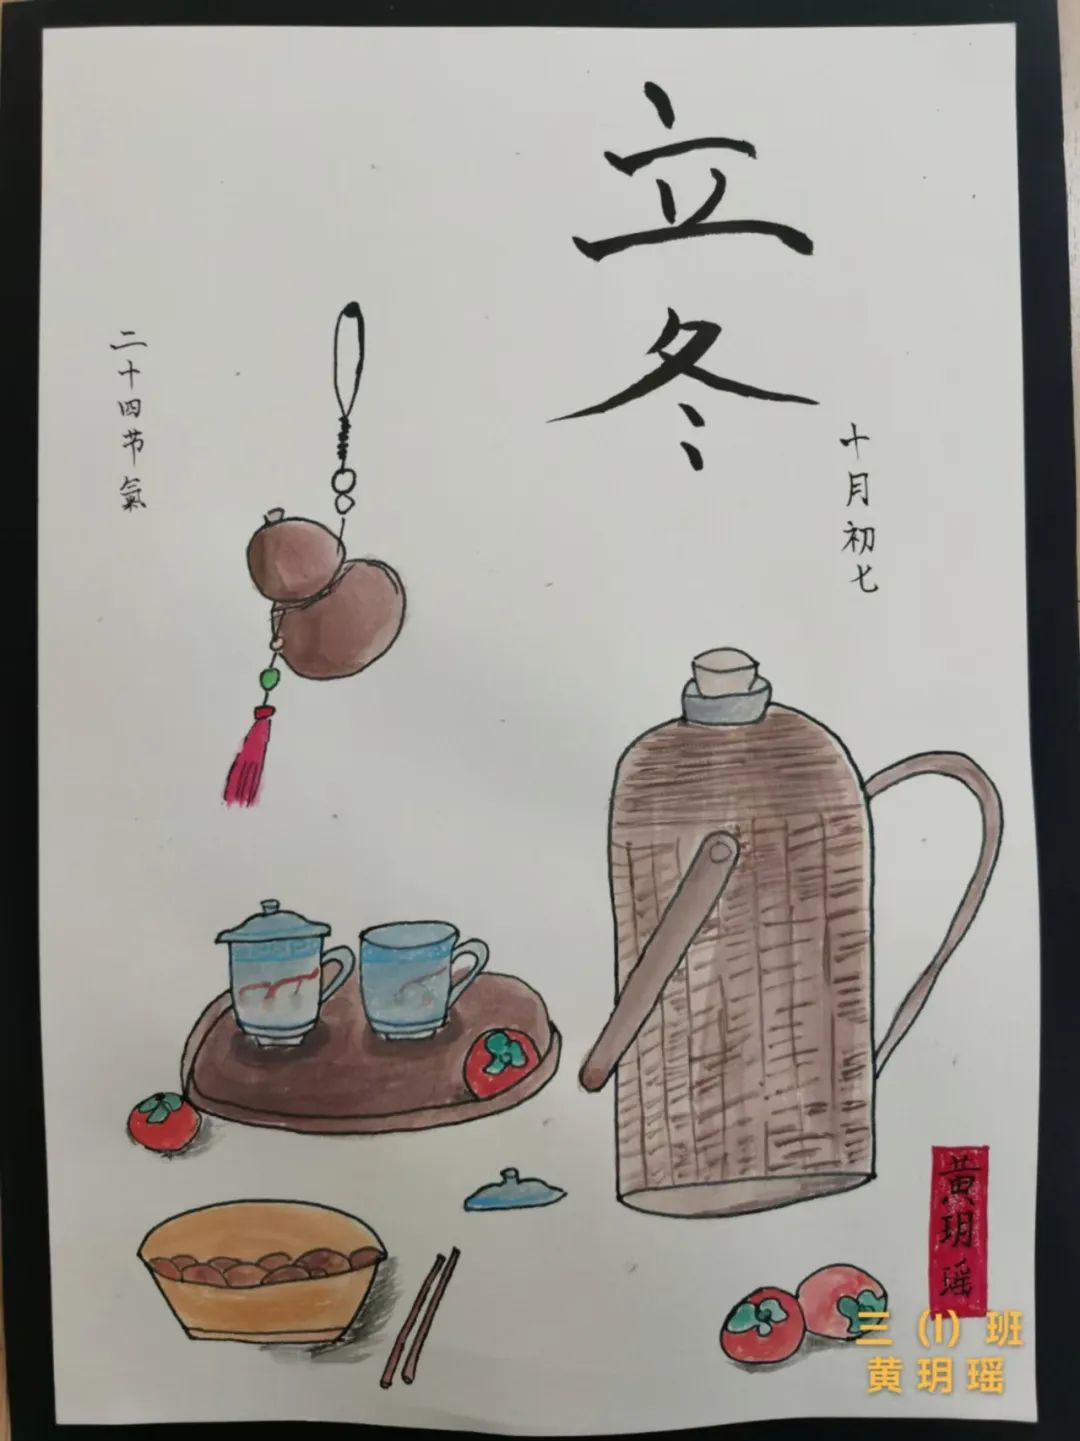 立冬
十月初七
二十四节氣
黄玥瑶
三（1）班
黄玥瑶